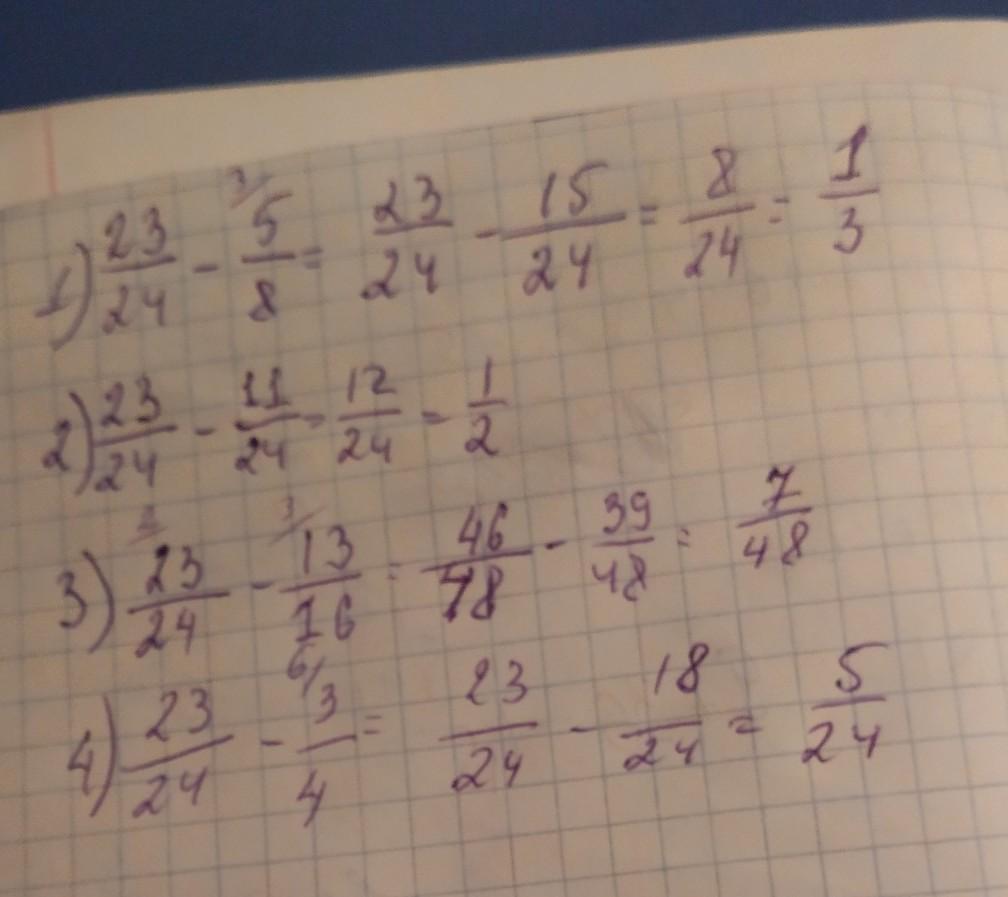 1) 23/24 - 3/ 5/8 = 23/24 - 15/24 = 8/24 = 1/3
2) 23/24 - 11/24 = 12/24 = 1/2
3) 2/ 23/24 - 3/ 13/16 = 46/48 - 39/48 = 7/48
4) 23/24 - 6/ 3/4 = 23/24 - 18/24 = 5/24